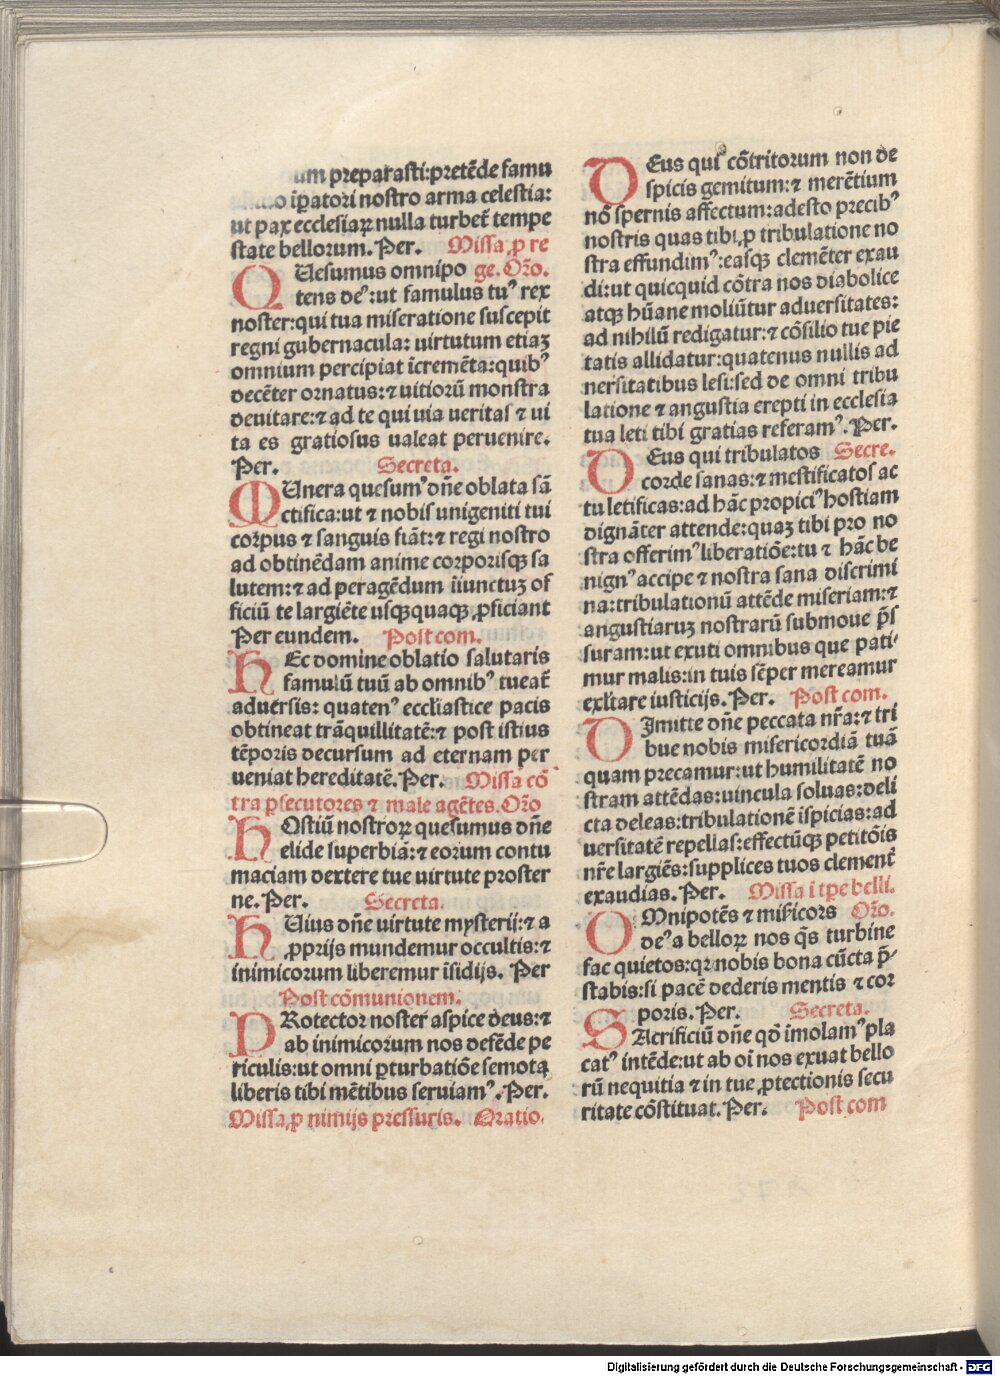 um preparasti:pretēde famu
lo īpatori nostro arma celestia:
ut pax ecclesiaꝝ nulla turbet̄ tempe
state bellorum. Per. Missa ꝓ re
QUesumus omnipo ge. Oŕo.
tens deꝰ:ut famulus tuꝰ rex
noster:qui tua miseratione suscepit
regni gubernacula: uirtutum etiaꝫ
omnium percipiat īcremēta:quibꝰ
decēter ornatus:⁊ uitiorū monstra
deuitare:⁊ ad te qui uia ueritas ⁊ ui
ta es gratiosus ualeat peruenire.
Per. Secreta.
MUnera quesumꝰ dn̄e oblata sā
ctifica:ut ⁊ nobis unigeniti tui
corpus ⁊ sanguis fiāt:⁊ regi nostro
ad obtinēdam anime corporisqꝫ sa
lutem:⁊ ad peragēdum iīunctuꝫ of
ficiū te largiēte usqꝫquaqꝫ ꝓficiant
Per eundem. Post com.
HEc domine oblatio salutaris
famulū tuū ab omnibꝰ tueat̄
aduersis: quatenꝰ eccl̄iastice pacis
obtineat trāquillitatē:⁊ post istius
tēporis decursum ad eternam per
ueniat hereditatē. Per. Missa cō
tra ꝑsecutores ⁊ male agētes. Oŕo
HOstiū nostroꝝ quesumus dn̄e
elide superbiā:⁊ eorum contu
maciam dextere tue uirtute proster
ne. Per. Secreta.
HUius dn̄e uirtute mysterij:⁊ a
ꝓprijs mundemur occultis:⁊
inimicorum liberemur īsidijs. Per
Post cōmunionem.
PRotector noster aspice deus:⁊
ab inimicorum nos defēde pe
riculis:ut omni ꝑturbatiōe semota
liberis tibi mētibus seruiamꝰ. Per.
Missa ꝓ nimijs pressuris. Oratio.
DEus qui cōtritorum non de
spicis gemitum:⁊ merētium
nō spernis affectum:adesto precibꝰ
nostris quas tibi ꝓ tribulatione no
stra effundimꝰ:easqꝫ clemēter exau
di:ut quicquid cōtra nos diabolice
atqꝫ hūane moliūtur aduersitates:
ad nihilū redigatur:⁊ cōsilio tue pie
tatis allidatur:quatenus nullis ad
uersitatibus lesi:sed de omni tribu
latione ⁊ angustia erepti in ecclesia
tua leti tibi gratias referamꝰ. Per.
DEus qui tribulatos Secre.
corde sanas:⁊ mestificatos ac
tu letificas:ad hāc propiciꝰ hostiam
dignāter attende:quaꝫ tibi pro no
stra offerimꝰ liberatiōe:tu ⁊ hāc be
nignꝰ accipe ⁊ nostra sana discrimi
na:tribulationū attēde miseriam:⁊
angustiaruꝫ nostrarū submoue p̄s
suram:ut exuti omnibus que pati-
mur malis:in tuis sēper mereamur
exl̄tare iusticijs. Per. Post com.
DImitte dn̄e peccata nr̄a:⁊ tri
bue nobis misericordiā tuā
quam precamur:ut humilitatē no
stram attēdas:uincula soluas:deli
cta deleas:tribulationē īspicias:ad
uersitatē repellas:effectūqꝫ petitōis
nr̄e largiēs:supplices tuos clement̄
exaudias. Per. Missa ī tꝑe belli.
OMnipotēs ⁊ mis̄icors Oŕo.
deꝰ a belloꝝ nos q̄s turbine
fac quietos:qꝛ nobis bona cūcta p̄-
stabis:si pacē dederis mentis ⁊ cor
poris. Per. Secreta.
SAcrificiū dn̄e qd̄ imolamꝰ pla
catꝰ intēde:ut ab oī nos exuat bello
rū nequitia ⁊ in tue ꝓtectionis secu
ritate cōstituat. Per. Post com
Digitalisierung gefördert durch die Deutsche Forschungsgemeinschaft - DFG